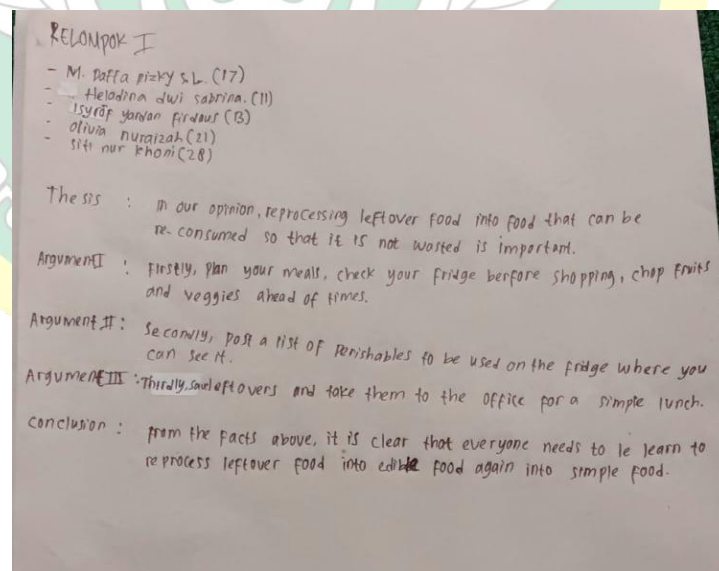 KELOMPOK I
- M. Daffa rizky S.L. (17)
- Heladina dwi sabrina. (11)
- Isyrof yardan firdaus (13)
- Olivia nuraizah (21)
- Siti nur khoni (28)
Thesis : In our opinion, reprocessing leftover food into food that can be
re-consumed so that it is not wasted is important.
Argument I : Firstly, plan your meals, check your fridge berfore shopping, chop fruits
and veggies ahead of times.
Argument II : Secondly, post a list of perishables to be used on the fridge where you
can see it.
Argument III : Thirdly, save leftovers and take them to the office for a simple lunch.
Conclusion : From the facts above, it is clear that everyone needs to le learn to
reprocess leftover food into edible food again into simple food.